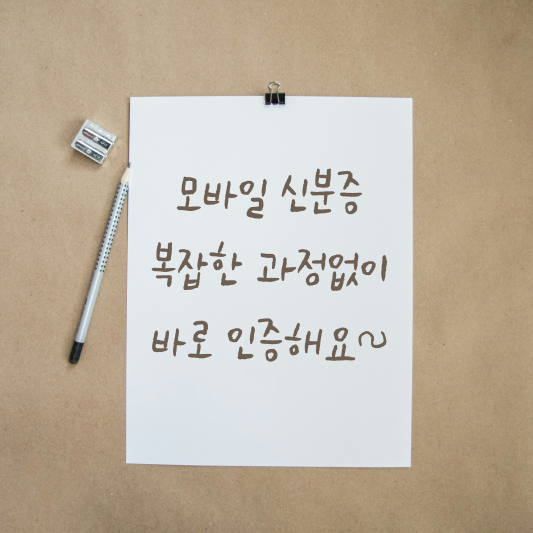 모바일 신분증
복잡한 과정없이
바로 인증해요~